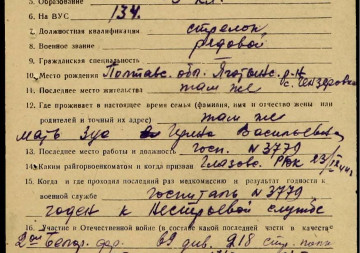 5. Образование
6. На ВУС 134.
7. Должностная квалификация стрелок
8. Военное звание рядовой
9. Гражданская специальность
10. Место рождения Полтавс. обл.
11. Последнее место жительства там же
12. Где проживает в настоящее время семья (фамилия, имя и отчество жены или
родителей и точный их адрес) там же
мать Васильевна
13. Последнее место работы и должность госп. N 3779
14. Каким райгорвоенкоматом и когда призван РВК 23/
15. Когда и где проходил последний раз медкомиссию и результат годности к
военной службе Госпиталь N 3779
годен к нестроевой службе
16. Участие в Отечественной войне (в составе какой последней части в качестве
2ой Белор. фр. див. 218 стр. полк